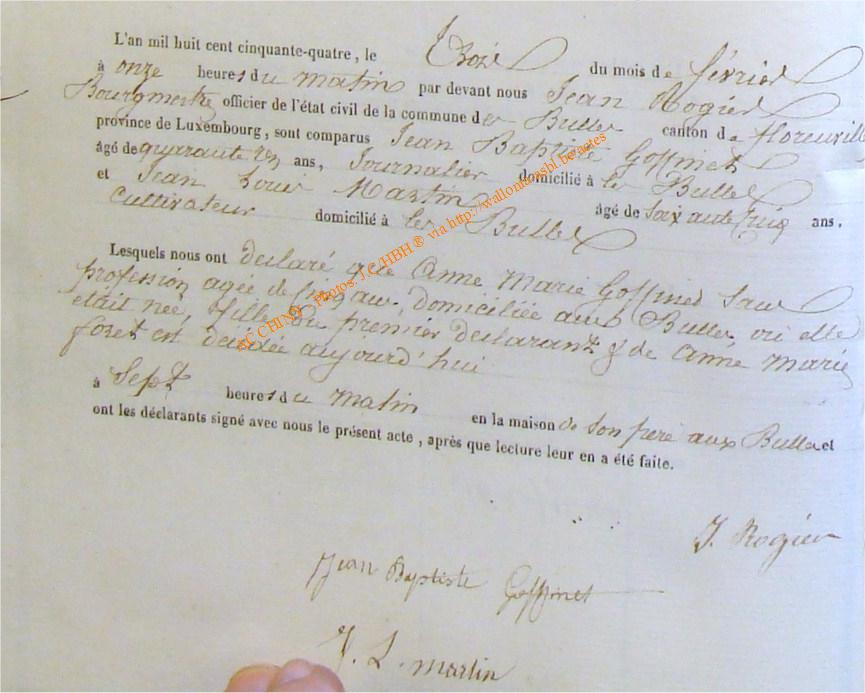 L'an mil huit cent cinquante-quatre, le Trois du mois de février
à onze heures du matin par devant nous Jean Rogier
Bourgmestre officier de l'état civil de la commune des Bulles canton de florenville
province de Luxembourg, sont comparus Jean Baptiste Goffinet
âgé de quarante ans, Journalier domicilié à les Bulles
et Jean Louis Martin âgé de soixante cinq ans.
Cultivateur domicilié à les Bulles
Lesquels nous ont declaré que Anne Marie Goffinet Sans
profession agée de cinq ans, domiciliée aux Bulles, où elle
etait née, fille du premier declarant & de Anne Marie
foret est décédée aujourd'hui
à Sept heures du matin en la maison de son pere aux Bulles et
ont les déclarants signé avec nous le présent acte, après que lecture leur en a été faite.
J. Rogier
Jean Baptiste Goffinet
J. L. martin
Photos: J.C/HBH ® via http://wallonia.asbl.be/actes